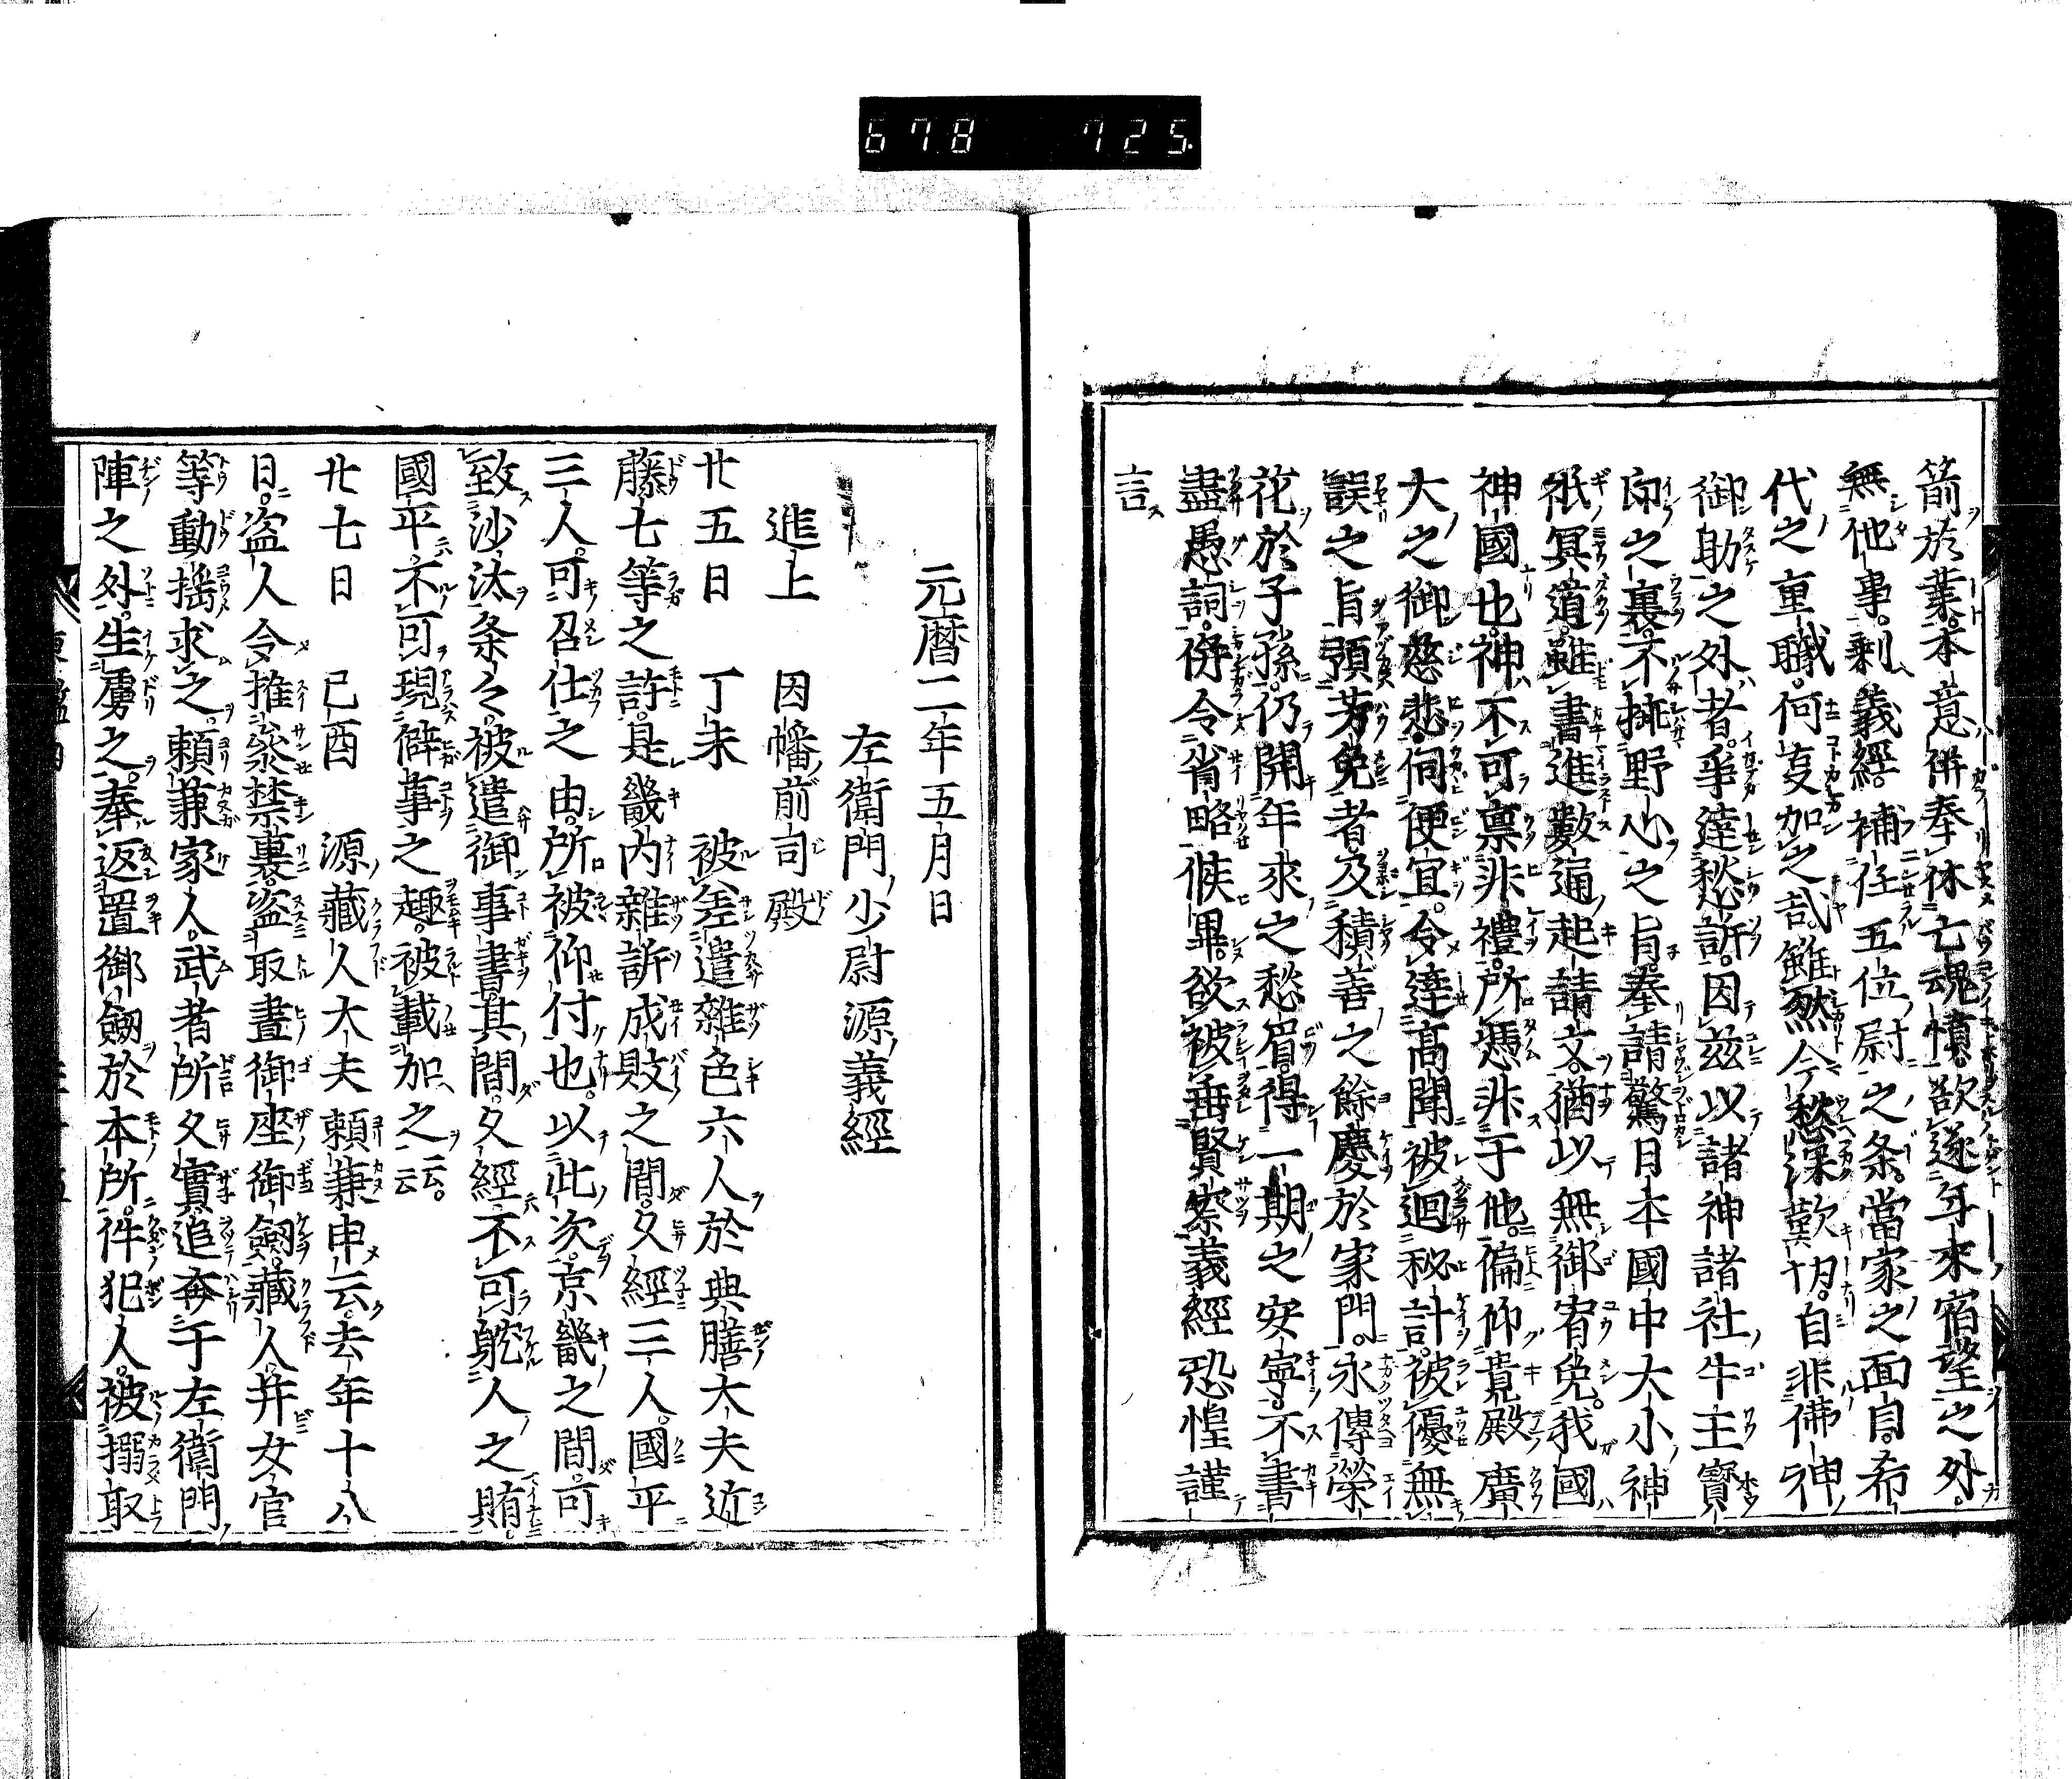 678 725
箭於葉。本意併奉休亡魂憤。欲遂年來宿望之外。
無他事。剩義經。補任五位尉之条。當家之面目。希
代之重職。何叓加之哉。雖然今愁深歎切。自非佛神
御助之外者。爭達愁訴。因茲以諸神諸社牛王寶
印之裏。不揷野心之旨。奉請驚日本國中大小神
祇冥道。雖書進數通起請文。猶以無御宥免。我國
神國也。神不可禀非禮。所憑非于他。偏仰貴殿廣
大之御慈悲。伺便宜。令達高聞被迴秘計。被優無
誤之旨預芳免者。及積善之餘慶於家門。永傳榮
花於子孫。仍開年來之愁眉。得一期之安寧。不書
盡愚詞。併令省略候畢。欲被垂賢察義經恐惶謹
言
元曆二年五月日
左衞門少尉源義經
進上 因幡前司殿
廿五日 丁未 被差遣雜色六人於典膳大夫近
藤七等之許。是畿内雜訴成敗之間。久經三人。國平
三人。可召仕之由。所被仰付也。以此次。京畿之間。可
致沙汰条々。被遣御事書其間。久經不可躭人之賄。
國平不可現僻事之趣。被載加之云云。
廿七日 己酉 源藏人大夫賴兼申云。去年十八
日。盗人令推參禁裏。盗取晝御座御劔。藏人并女官
等動揺求之。賴兼家人。武者所久實追奔于左衞門
陣之外。生虜之。奉返置御劔於本所。件犯人。被搦取